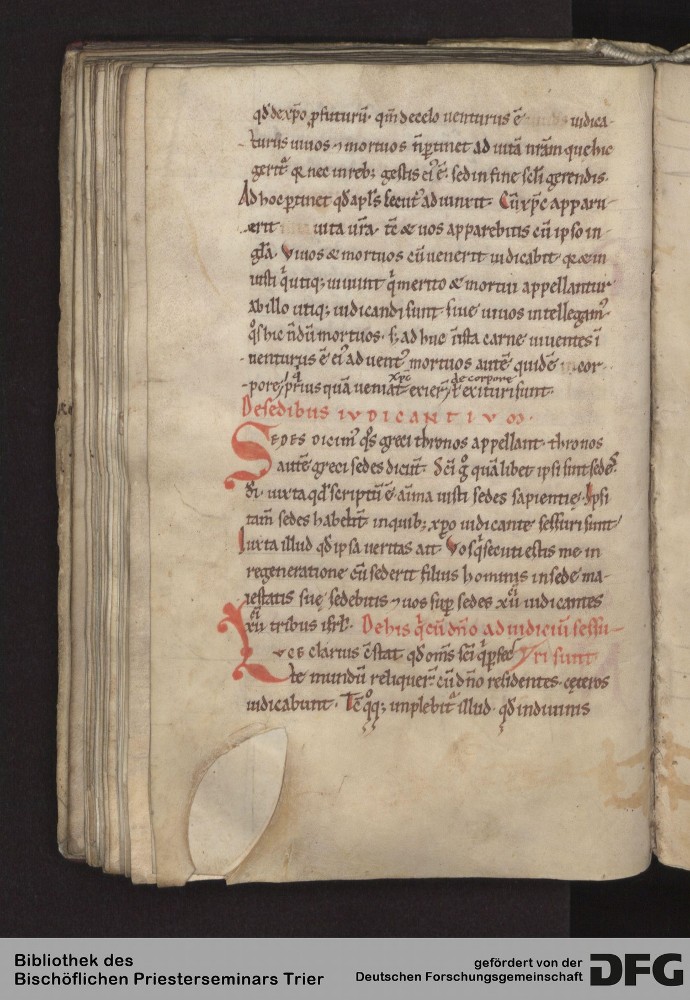 qd de xpo pfuturū. qm̄ de celo uenturus ē iudica-
turus uiuos ⁊ mortuos n̄ ptinet ad uitā nrām que hic
gerit̄ q̄ nec in reb; gestis ei' ē. sed in fine sc̄li gerendis.
Ad hoc ptinet qd apl's secut' adiunxit. Cū xp̄c apparu-
erit uita ura. tc̄ & uos apparebitis cū ipso in
gl̄a. Viuos & mortuos cū uenerit iudicabit. & in
iusti q̄ utiq; uiuunt q̄ merito & mortui appellantur
ab illo utiq; iudicandi sunt. siue uiuos intellegam'
q̊s hic n̄dū mortuos. s; adhuc ī ista carne uiuentes ī
uenturus ē ei' aduent' mortuos autē quidē cor-
pore prius quā ueniat xp̄c exier̄ de corpore ł exituri sunt.
De sedibus IVDICANTIVM.
SEDES dicim' q̊s greci thronos appellant. thronos
autē greci sedes dicūt. Sc̄i g̊ quālibet ipsi sunt sedes
di. iuxta qd scriptū ē. aīma iusti sedes sapientię. Ipsi
tam̄ sedes habebt̄ in quib; xp̄o iudicante sessuri sunt
Iuxta illud qd ipsa ueritas ait. Vos q̄ secuti estis me in
regeneratione cū sederit filius hominis in sede ma-
iestatis suę. sedebitis ⁊ uos sup sedes xii iudicantes
xii tribus isrl. De his q̄ cū dn̄o ad iudiciū sessu-
ri sunt
LVCE clarius c̄stat qd om̄s sc̄i q̄ pfec
te mundū reliquer̄ cū dn̄o residentes. cęteros
iudicabunt. Tc̄ q̊q; implebit̄ illud. qd in diuinis
Bibliothek des
Bischöflichen Priesterseminars Trier
gefördert von der
Deutschen Forschungsgemeinschaft
DFG